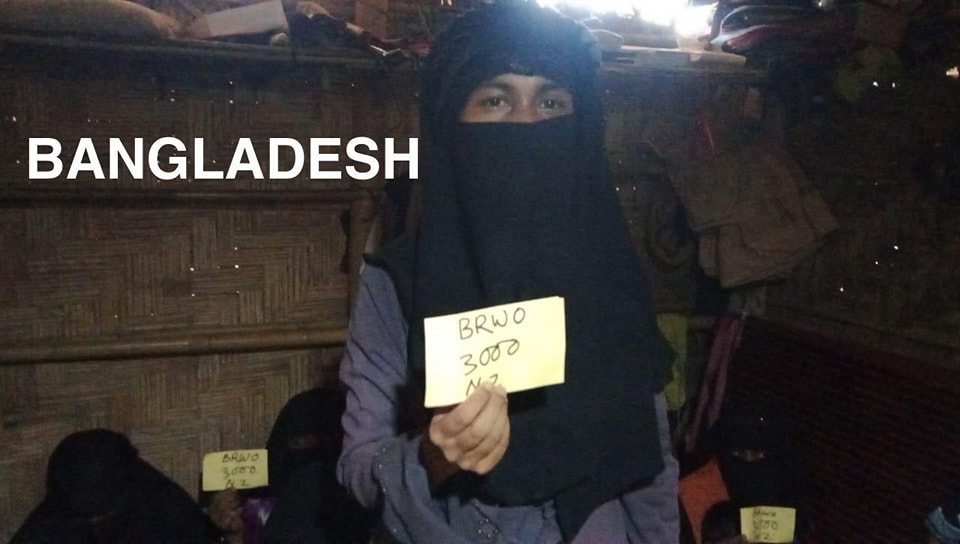 BANGLADESH
BRWO
3000
NZ
BRWO
3000
NZ
3000
NZ